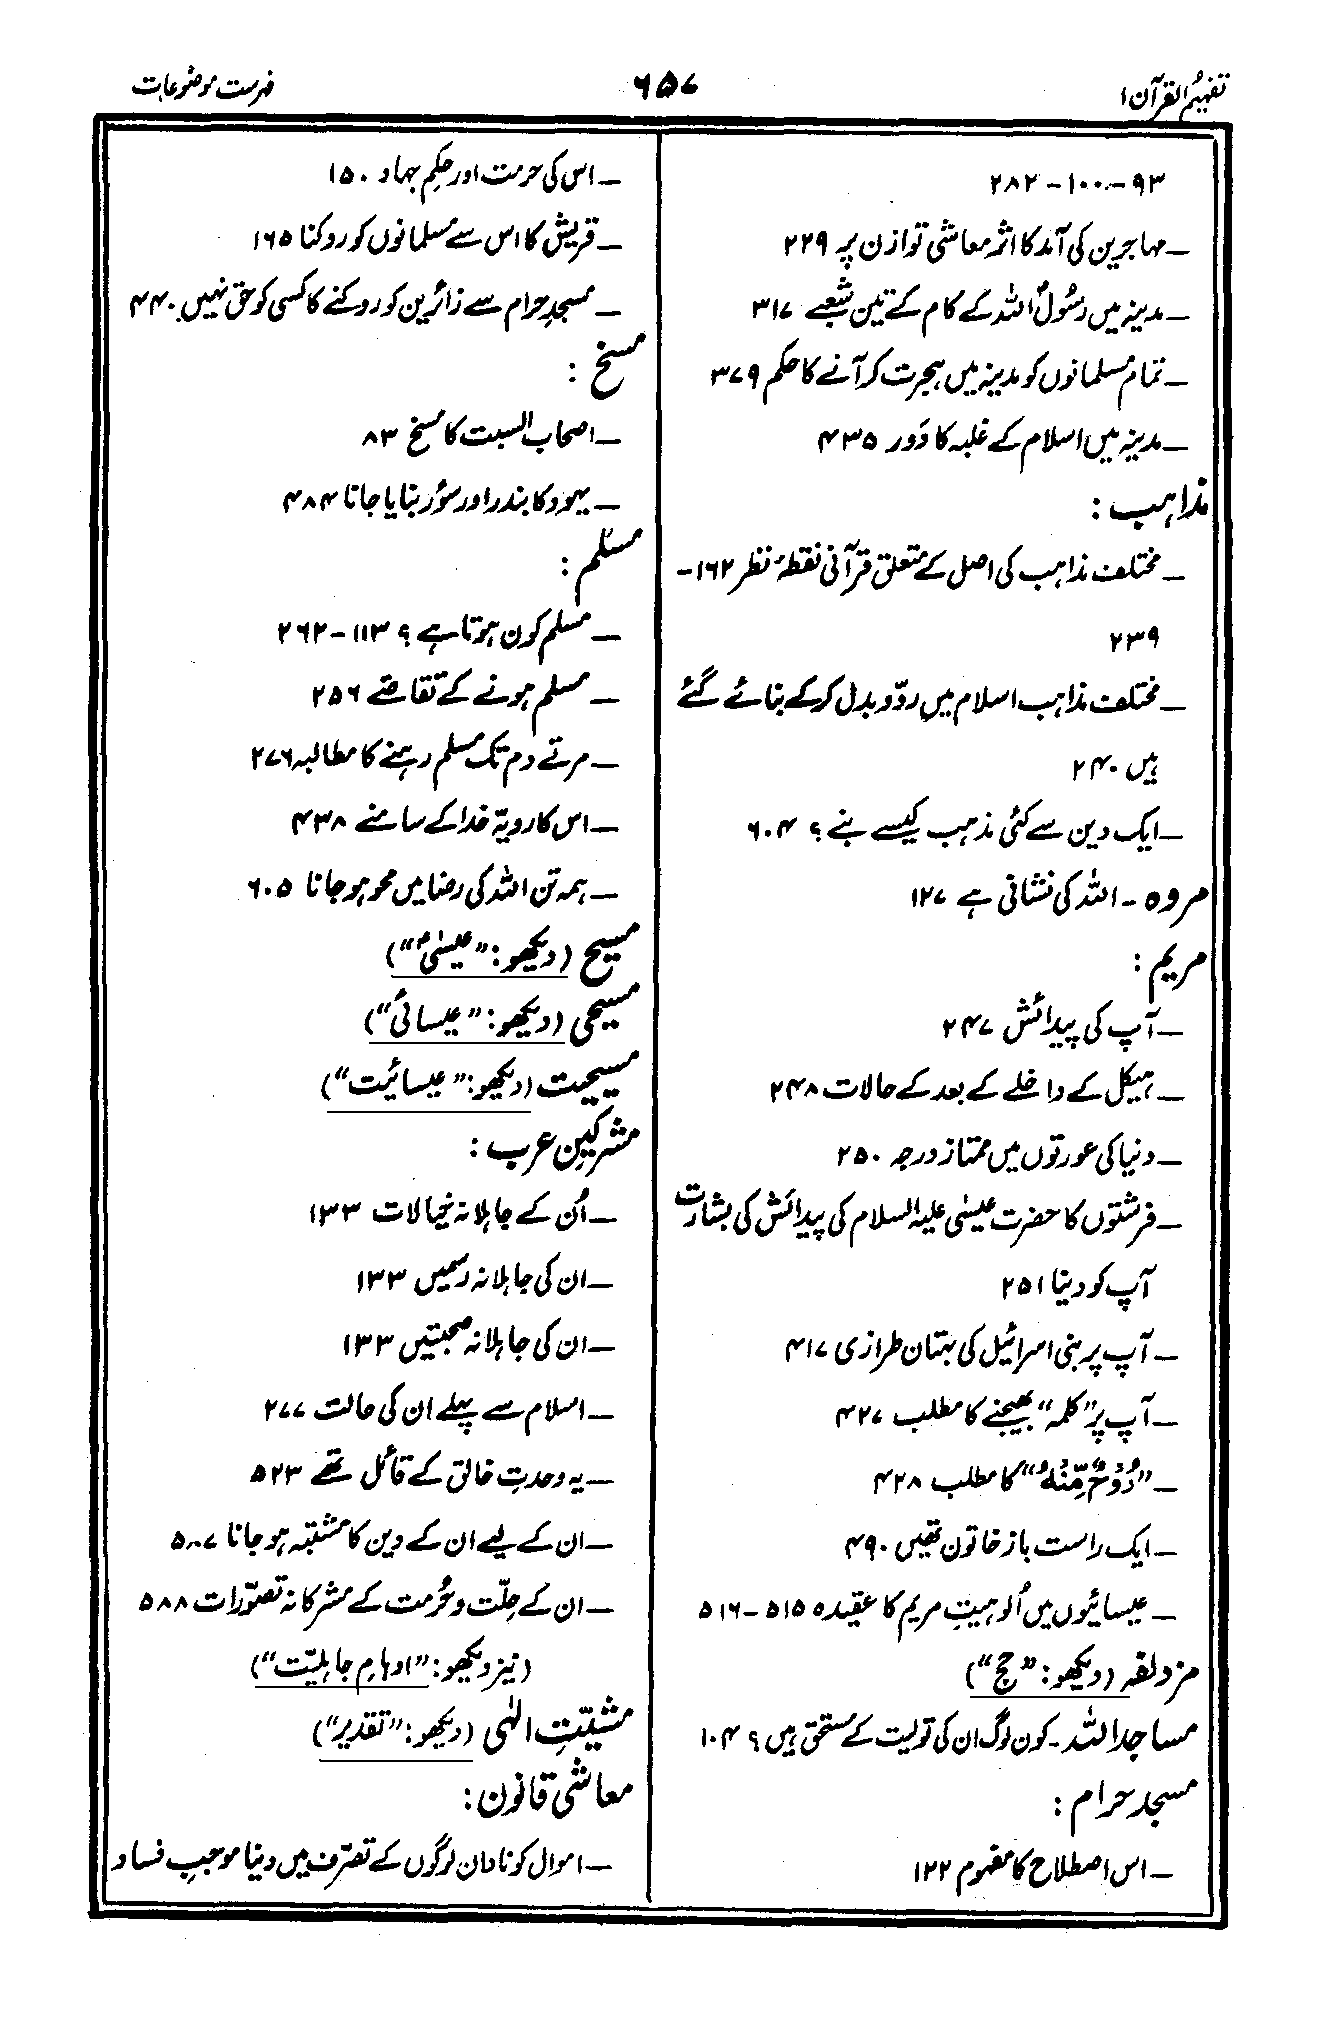 تفہیم القرآن ۱
۶۵۷
فہرست موضوعات
۹۳-۱۰۰-۲۸۲
_ مہاجرین کی آمد کا اثر معاشی توازن پر ۲۲۹
_ مدینہ میں رسُولؐ اللہ کے کام کے تین شعبے ۳۱۷
_ تمام مسلمانوں کو مدینہ میں ہجرت کر آنے کا حکم ۳۷۹
_ مدینہ میں اسلام کے غلبہ کا دَور ۴۳۵
مذاہب :
_ مختلف مذاہب کی اصل کے متعلق قرآنی نقطۂ نظر ۱۶۲-
۲۳۹
_ مختلف مذاہب اسلام میں ردّ و بدل کر کے بنائے گئے
ہیں ۲۴۰
_ ایک دین سے کئی مذہب کیسے بنے ؟ ۶۰۴
مروہ - اللہ کی نشانی ہے ۱۲۷
مریم :
_ آپ کی پیدائش ۲۴۷
_ ہیکل کے داخلے کے بعد کے حالات ۲۴۸
_ دنیا کی عورتوں میں ممتاز درجہ ۲۵۰
_ فرشتوں کا حضرت عیسٰی علیہ السلام کی پیدائش کی بشارت
آپ کو دینا ۲۵۱
_ آپ پر بنی اسرائیل کی بہتان طرازی ۴۱۷
_ آپ پر ”کلمہ“ بھیجنے کا مطلب ۴۲۷
_ ”رُوْحٌ مِّنْهُ“ کا مطلب ۴۲۸
_ ایک راست باز خاتون تھیں ۴۹۰
_ عیسائیوں میں اُلوہیتِ مریم کا عقیدہ ۵۱۵-۵۱۶
مزدلفہ (دیکھو : ”حج“)
مساجد اللہ - کون لوگ ان کی تولیت کے مستحق ہیں ؟ ۱۰۴
مسجد حرام :
_ اس اصطلاح کا مفہوم ۱۲۲
_ اس کی حرمت اور حکمِ جہاد ۱۵۰
_ قریش کا اس سے مسلمانوں کو روکنا ۱۶۵
_ مسجدِ حرام سے زائرین کو روکنے کا کسی کو حق نہیں ۴۴۰
مسخ :
_ اصحاب السبت کا مسخ ۸۳
_ یہود کا بندر اور سؤر بنایا جانا ۴۸۴
مسلم :
_ مسلم کون ہوتا ہے ؟ ۱۱۳-۲۶۲
_ مسلم ہونے کے تقاضے ۲۵۶
_ مرتے دم تک مسلم رہنے کا مطالبہ ۲۷۶
_ اس کا رویّہ خدا کے سامنے ۴۳۸
_ ہمہ تن اللہ کی رضا میں محو ہو جانا ۶۰۵
مسیح (دیکھو : ”عیسٰیؑ“)
مسیحی (دیکھو : ”عیسائی“)
مسیحیت (دیکھو : ”عیسائیت“)
مشرکینِ عرب :
_ اُن کے جاہلانہ خیالات ۱۳۳
_ ان کی جاہلانہ رسمیں ۱۳۳
_ ان کی جاہلانہ حجتیں ۱۳۳
_ اسلام سے پہلے ان کی حالت ۲۷۷
_ یہ وحدتِ خالق کے قائل تھے ۵۲۳
_ ان کے لیے ان کے دین کا مشتبہ ہو جانا ۵۸۷
_ ان کے حِلّت و حُرمت کے مشرکانہ تصوّرات ۵۸۸
(نیز دیکھو : ”اوہامِ جاہلیّت“)
مشیّتِ الٰہی (دیکھو : ”تقدیر“)
معاشی قانون :
_ اموال کو نادان لوگوں کے تصرّف میں دینا موجبِ فساد